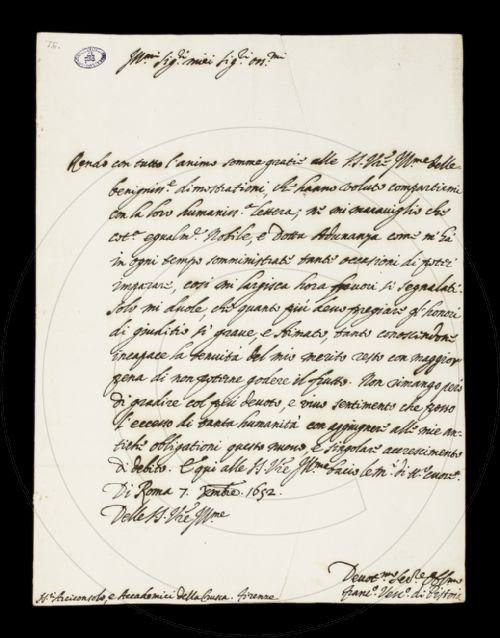 Ill.mi Sig.ri miei Sig.ri oss.mi
Rendo con tutto l'animo somme gratie alle SS. VV. Ill.me delle
benignis.e dimostrationi, che hanno voluto compartirmi
con la loro humanis.a lettera; ne mi maraviglio che
cot.a egualm.e Nobile, e Dotta Adunanza come m'hà
in ogni tempo somministrate tante occasioni di poter
imparare, così mi largisca hora favori sì segnalati.
Solo mi duole, che quanto più devo pregiare gl'honori
di giuditio sì grave e stimato, tanto conoscendone
incapace la tenuità del mio merito resto con maggior
pena di non poterne godere il frutto. Non rimango però
di gradire col più devoto, e vivo sentimento che posso
l'eccesso di tanta humanità con aggiugnere alle mie an-
tiche obligationi questo nuovo, e singolare accrescimento
di debito. E qui alle SS. VV. Ill.me bacio le m.i di vero cuore.
Di Roma 7. Xembre. 1652.
Delle SS. VV. Ill.me
Devot.mo Ser.re
Fran.o Vesc.o di Pistoia
SS.ri Arciconsolo, e Accademici della Crusca. Firenze